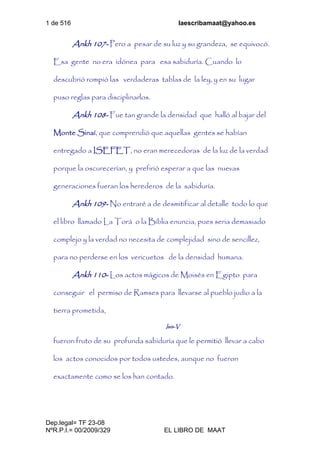 1 de 516 laescribamaat@yahoo.es
Ankh 107- Pero a pesar de su luz y su grandeza, se equivocó.
Esa gente no era idónea para esa sabiduría. Cuando lo
descubrió rompió las verdaderas tablas de la ley, y en su lugar
puso reglas para disciplinarlos.
Ankh 108- Fue tan grande la densidad que halló al bajar del
Monte Sinaí, que comprendió que aquellas gentes se habían
entregado a ISEFET, no eran merecedoras de la luz de la verdad
porque la oscurecerían, y prefirió esperar a que las nuevas
generaciones fueran los herederos de la sabiduría.
Ankh 109- No entraré a de desmitificar al detalle todo lo que
el libro llamado La Torá o la Biblia enuncia, pues seria demasiado
complejo y la verdad no necesita de complejidad sino de sencillez,
para no perderse en los vericuetos de la densidad humana.
Ankh 110- Los actos mágicos de Moisés en Egipto para
conseguir el permiso de Ramses para llevarse al pueblo judío a la
tierra prometida,
Isis-V
fueron fruto de su profunda sabiduría que le permitió llevar a cabo
los actos conocidos por todos ustedes, aunque no fueron
exactamente como se los han contado.
Dep.legal= TF 23-08
NºR.P.I.= 00/2009/329 EL LIBRO DE MAAT